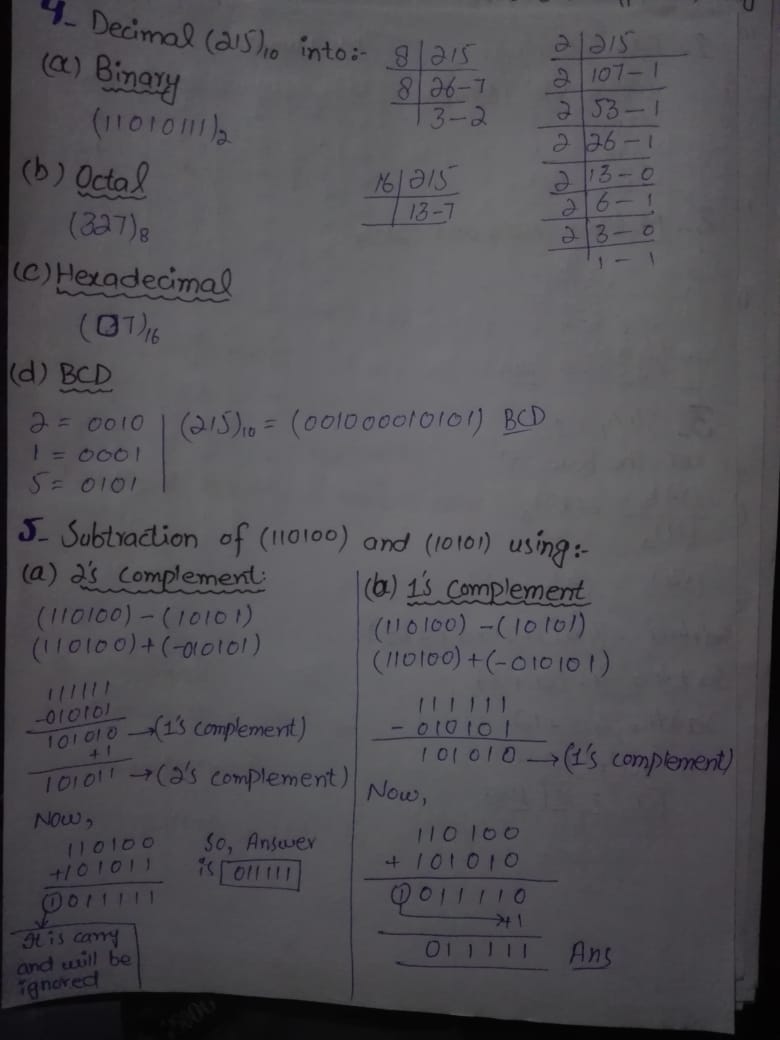 4- Decimal (215)10 into:-
(a) Binary
(11010111)2
(b) Octal
(327)8
(c) Hexadecimal
(D7)16
8 | 215
8 | 26-7
3-2
16 | 215
13-7
2 | 215
2 | 107-1
2 | 53-1
2 | 26-1
2 | 13-0
2 | 6-1
2 | 3-0
1-1
(d) BCD
2 = 0010
1 = 0001
5 = 0101
(215)10 = (001000010101) BCD
5- Subtraction of (110100) and (10101) using:-
(a) 2's complement:
(110100)-(10101)
(110100)+(-010101)
111111
-010101
101010 → (1's complement)
+1
101011 → (2's complement)
Now,
110100
+101011
1 011111
It is carry
and will be
ignored
So, Answer
is 011111
(b) 1's complement
(110100)-(10101)
(110100)+(-010101)
111111
- 010101
101010 → (1's complement)
Now,
110100
+ 101010
1 011110
→+1
011111 Ans